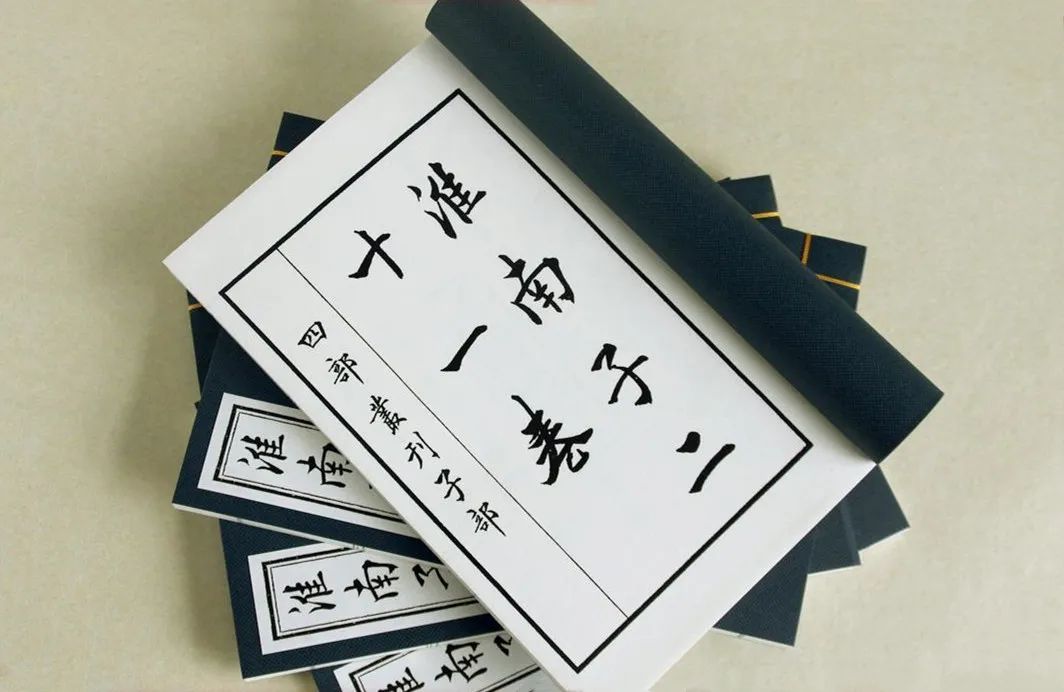 淮南子二
十一卷
四部叢刊子部
淮南
淮南
淮南